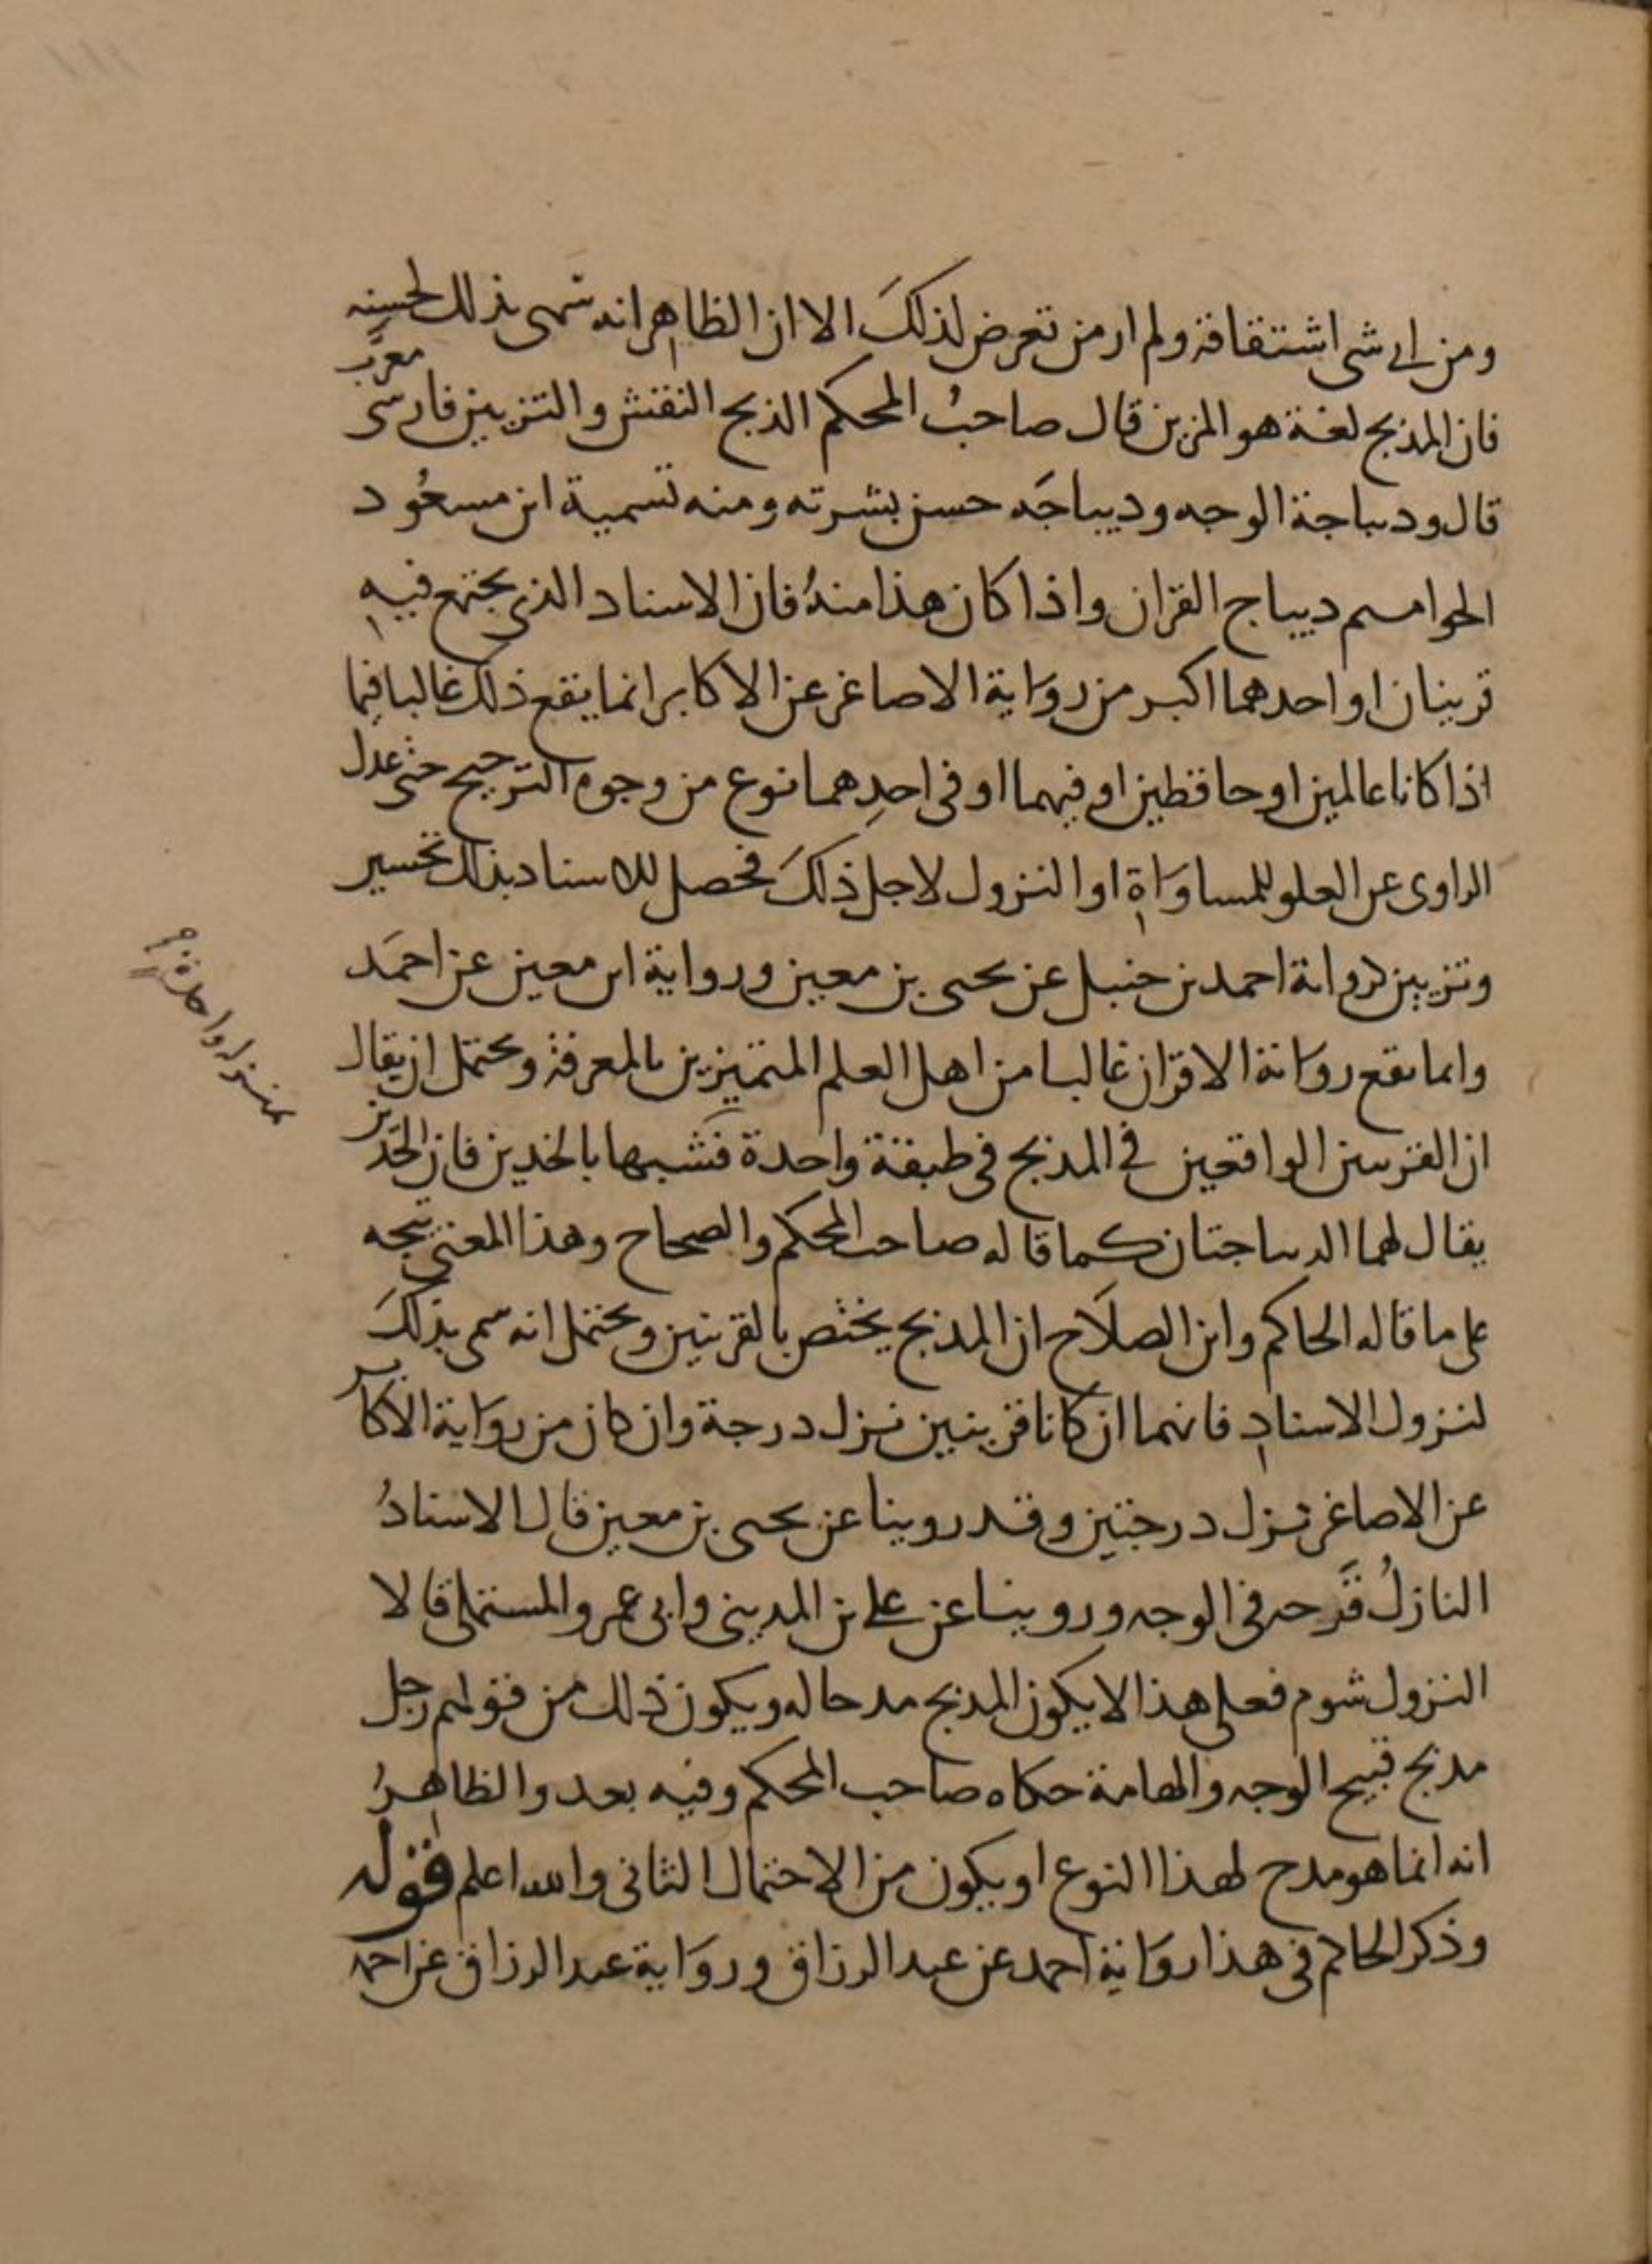 ومن اى شى اشتقاقة ولم ار من تعرض لذلكَ الا ان الظاهر انه سمى بذلك لحسنه
فان المدبج لغة هو المزين قال صاحبُ المحكم الدبج النقش والتزيين فارسى معرب
قال وديباجة الوجه وديباجَه حسن بشرته ومنه تسمية ابن مسعُود
الحواميم ديباج القران واذا كان هذا منهُ فان الاسناد الذى يجتمع فيهِ
قرينان او احدهما اكبر من رِوَاية الاصاغر عن الاكابر انما يقع ذلك غالبا فيما
اذا كانا عالمين او حافظين او فيهما او فى احدِهما نوع من وجوه الترجيح حتى عدل
الراوى عن العلو للمساوَاةِ او النزول لاجل ذلكَ فحصل للاسناد بذلك تحسين
وتزيين كرواية احمد بن حنبل عن يحيى بن معين ورواية ابن معين عن احمَد
وانما يقع روَاية الاقران غالبا من اهل العلم المتميزين بالمعرفة ويحتمل ان يقال
ان القرينين الواقعين فى المدبج فى طبقة واحدة فشبها بالخدين فان الخدين
بمنزلة واحدة
يقال لهما الديباجتان كما قاله صاحب المحكم والصحاح وهذا المعنى يتجه
على ما قاله الحاكم وابن الصلاَح ان المدبج يختص بالقرينين ويحتمل انه سمى بذلكَ
لنزول الاسنادِ فانهما ان كانا قرينين نزل درجة وان كان من روَاية الاكابر
عن الاصاغر نزل درجتين وقد روينا عن يحيى بن معين قال الاسنادُ
النازلُ قَرحه فى الوجه وروينا عن على بن المدينى وابى عمرو المستملى قالا
النزول شوم فعلى هذا لا يكون المدبج مدحا له ويكون ذلك من قولهم رجل
مدبج قبيح الوجه والهامة حكاه صاحب المحكم وفيه بعد والظاهرُ
انه انما هو مدح لهذا النوع او يكون من الاحتمال الثانى والله اعلم قوله
وذكر الحاكم فى هذا روَاية احمد عن عبد الرزاق وروَاية عبد الرزاق عن احمد